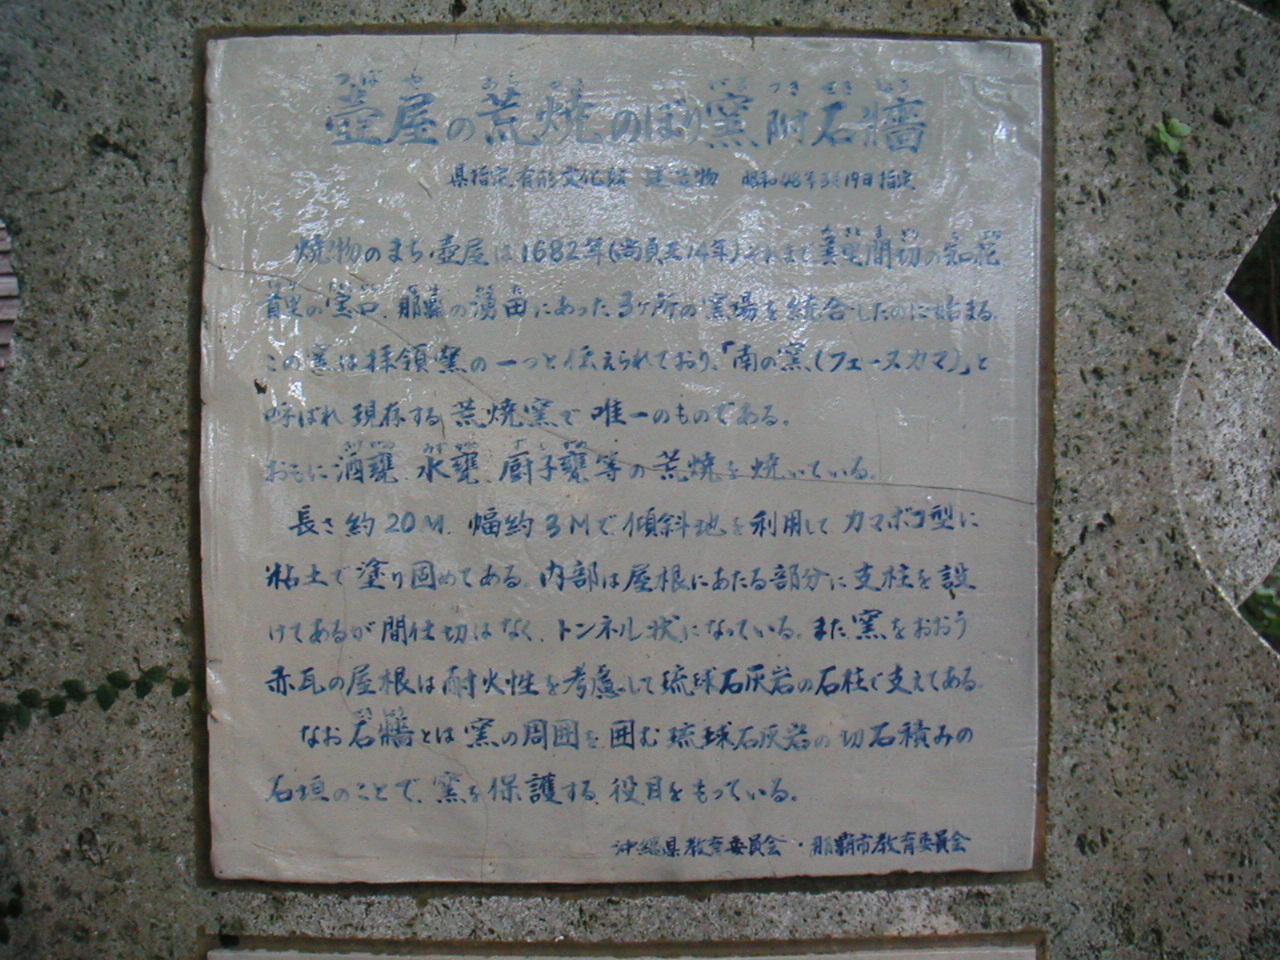 つぼ や あら やき がま つき せき しょう
壺屋の荒焼のぼり窯附石牆
県指定有形文化財 建造物 昭和48年3月19日指定
焼物のまち・壺屋は1682年(尚貞王14年)それまで美里間切の知花
首里の宝口、那覇の湧田にあった3ヶ所の窯場を統合したのに始まる。
この窯は拝領窯の一つと伝えられており、「南の窯(フェースカマ)」と
呼ばれ現存する荒焼窯で唯一のものである。
おもに酒甕、水甕、厨子甕等の荒焼を焼いている。
長さ約20M、幅約3Mで傾斜地を利用してカマボコ型に
粘土で塗り固めてある。内部は屋根にあたる部分に支柱を設
けてあるが間仕切はなく、トンネル状になっている。また窯をおおう
赤瓦の屋根は耐火性を考慮して琉球石灰岩の石柱で支えてある。
なお石牆とは窯の周囲を囲む琉球石灰岩の切石積みの
石垣のことで、窯を保護する役目をもっている。
沖縄県教育委員会・那覇市教育委員会